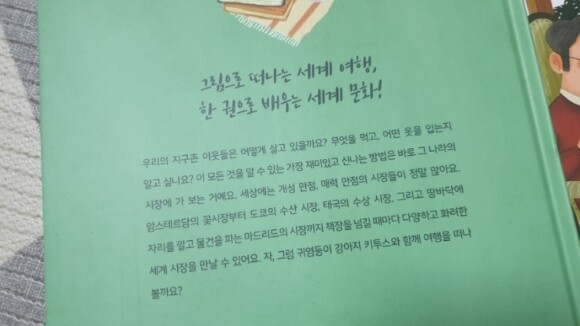 그림으로 떠나는 세계 여행,
한 권으로 배우는 세계 문화!
우리의 지구촌 이웃들은 어떻게 살고 있을까요? 무엇을 먹고, 어떤 옷을 입는지
알고 싶나요? 이 모든 것을 알 수 있는 가장 재미있고 신나는 방법은 바로 그 나라의
시장에 가 보는 거예요. 세상에는 개성 만점, 매력 만점의 시장들이 정말 많아요.
암스테르담의 꽃시장부터 도쿄의 수산 시장, 태국의 수상 시장, 그리고 땅바닥에
자리를 깔고 물건을 파는 마드리드의 시장까지 책장을 넘길 때마다 다양하고 화려한
세계 시장을 만날 수 있어요. 자, 그럼 귀염둥이 강아지 키투스와 함께 여행을 떠나
볼까요?